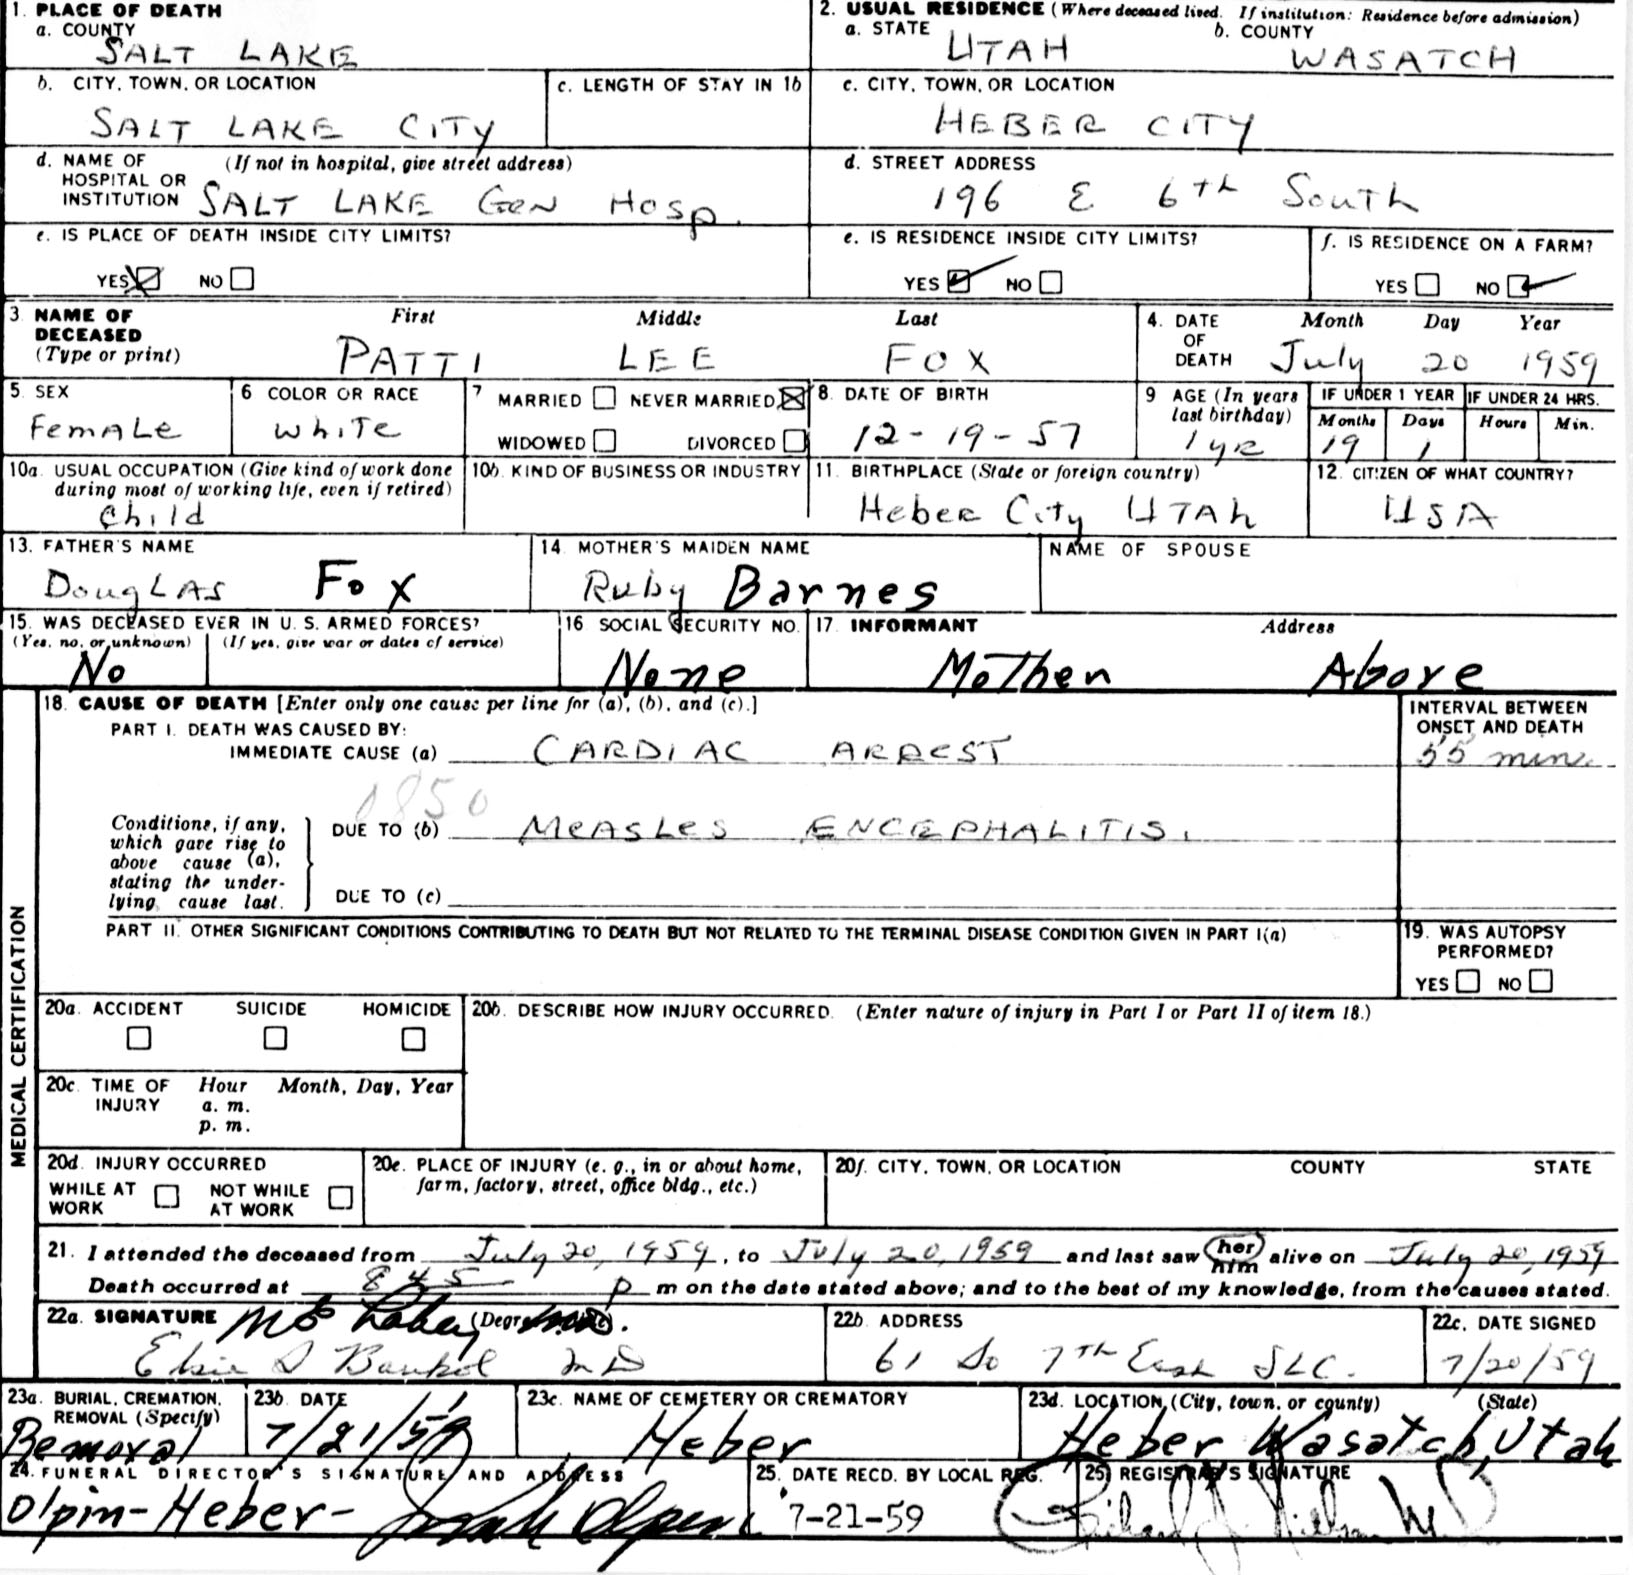 1. PLACE OF DEATH
a. COUNTY
SALT LAKE
2. USUAL RESIDENCE (Where deceased lived. If institution: Residence before admission)
a. STATE b. COUNTY
UTAH WASATCH
b. CITY, TOWN, OR LOCATION
SALT LAKE CITY
c. LENGTH OF STAY IN 1b
c. CITY, TOWN, OR LOCATION
HEBER CITY
d. NAME OF (If not in hospital, give street address)
HOSPITAL OR
INSTITUTION SALT LAKE Gen Hosp.
d. STREET ADDRESS
196 E 6th South
e. IS PLACE OF DEATH INSIDE CITY LIMITS?
YES NO
e. IS RESIDENCE INSIDE CITY LIMITS?
YES NO
f. IS RESIDENCE ON A FARM?
YES NO
3. NAME OF First Middle Last
DECEASED
(Type or print) PATTI LEE FOX
4. DATE Month Day Year
OF
DEATH July 20 1959
5. SEX
Female
6 COLOR OR RACE
White
7 MARRIED NEVER MARRIED
WIDOWED DIVORCED
8. DATE OF BIRTH
12-19-57
9 AGE (In years
last birthday)
1 yr
IF UNDER 1 YEAR IF UNDER 24 HRS.
Months Days Hours Min.
19 1
10a. USUAL OCCUPATION (Give kind of work done
during most of working life, even if retired)
Child
10b. KIND OF BUSINESS OR INDUSTRY
11. BIRTHPLACE (State or foreign country)
Heber City UTAh
12. CITIZEN OF WHAT COUNTRY?
USA
13. FATHER'S NAME
Douglas Fox
14. MOTHER'S MAIDEN NAME
Ruby Barnes
NAME OF SPOUSE
15. WAS DECEASED EVER IN U. S. ARMED FORCES?
(Yes, no, or unknown) (If yes, give war or dates of service)
No
16 SOCIAL SECURITY NO.
None
17. INFORMANT Address
Mother Above
MEDICAL CERTIFICATION
18. CAUSE OF DEATH [Enter only one cause per line for (a), (b), and (c).]
PART I. DEATH WAS CAUSED BY:
IMMEDIATE CAUSE (a) CARDIAC ARREST
INTERVAL BETWEEN
ONSET AND DEATH
55 min.
0850
Conditions, if any,
which gave rise to
above cause (a),
stating the under-
lying cause last.
DUE TO (b) MEASLES ENCEPHALITIS.
DUE TO (c)
PART II. OTHER SIGNIFICANT CONDITIONS CONTRIBUTING TO DEATH BUT NOT RELATED TO THE TERMINAL DISEASE CONDITION GIVEN IN PART I(a)
19. WAS AUTOPSY
PERFORMED?
YES NO
20a. ACCIDENT SUICIDE HOMICIDE
20b. DESCRIBE HOW INJURY OCCURRED. (Enter nature of injury in Part I or Part II of item 18.)
20c. TIME OF Hour Month, Day, Year
INJURY a. m.
p. m.
20d. INJURY OCCURRED
WHILE AT NOT WHILE
WORK AT WORK
20e. PLACE OF INJURY (e. g., in or about home,
farm, factory, street, office bldg., etc.)
20f. CITY, TOWN, OR LOCATION COUNTY STATE
21. I attended the deceased from July 20, 1959, to July 20, 1959 and last saw her him alive on July 20, 1959
Death occurred at 8 45 p m on the date stated above; and to the best of my knowledge, from the causes stated.
22a. SIGNATURE
22b. ADDRESS
61 So 7th East SLC.
22c. DATE SIGNED
7/20/59
23a. BURIAL, CREMATION,
REMOVAL (Specify)
Removal
23b. DATE
7/21/59
23c. NAME OF CEMETERY OR CREMATORY
Heber
23d. LOCATION (City, town, or county) (State)
Heber Wasatch, Utah
24. FUNERAL DIRECTOR'S SIGNATURE AND ADDRESS
Olpin-Heber-
25. DATE RECD. BY LOCAL REG.
7-21-59
25) REGISTRAR'S SIGNATURE